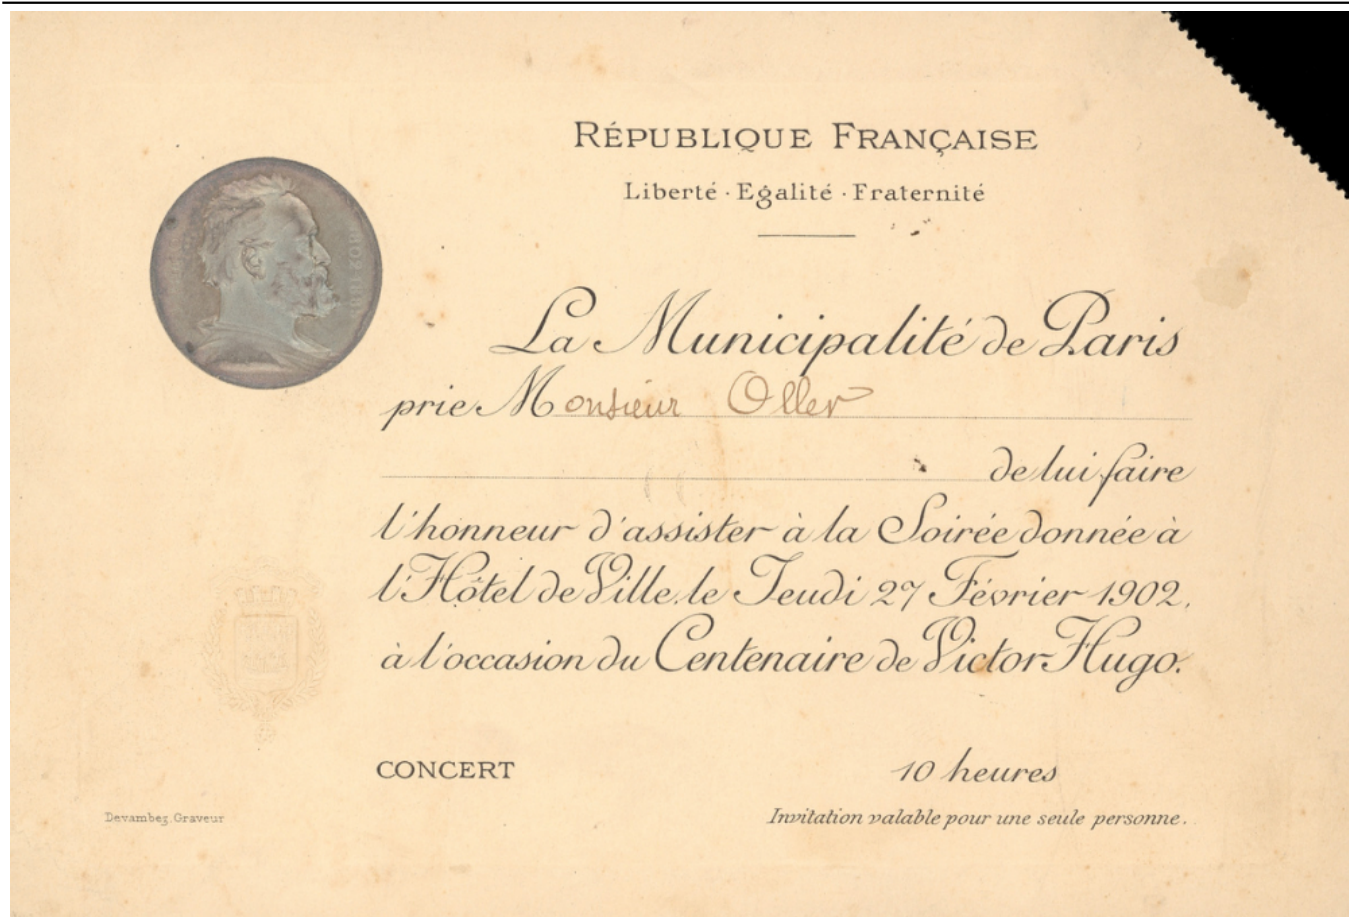 RÉPUBLIQUE FRANÇAISE
Liberté · Egalité · Fraternité
La Municipalité de Paris
prie Monsieur Oller
de lui faire
l'honneur d'assister à la Soirée donnée à
l'Hôtel de Ville, le Jeudi 27 Février 1902,
à l'occasion du Centenaire de Victor Hugo.
CONCERT 10 heures
Devambez, Graveur
Invitation valable pour une seule personne.